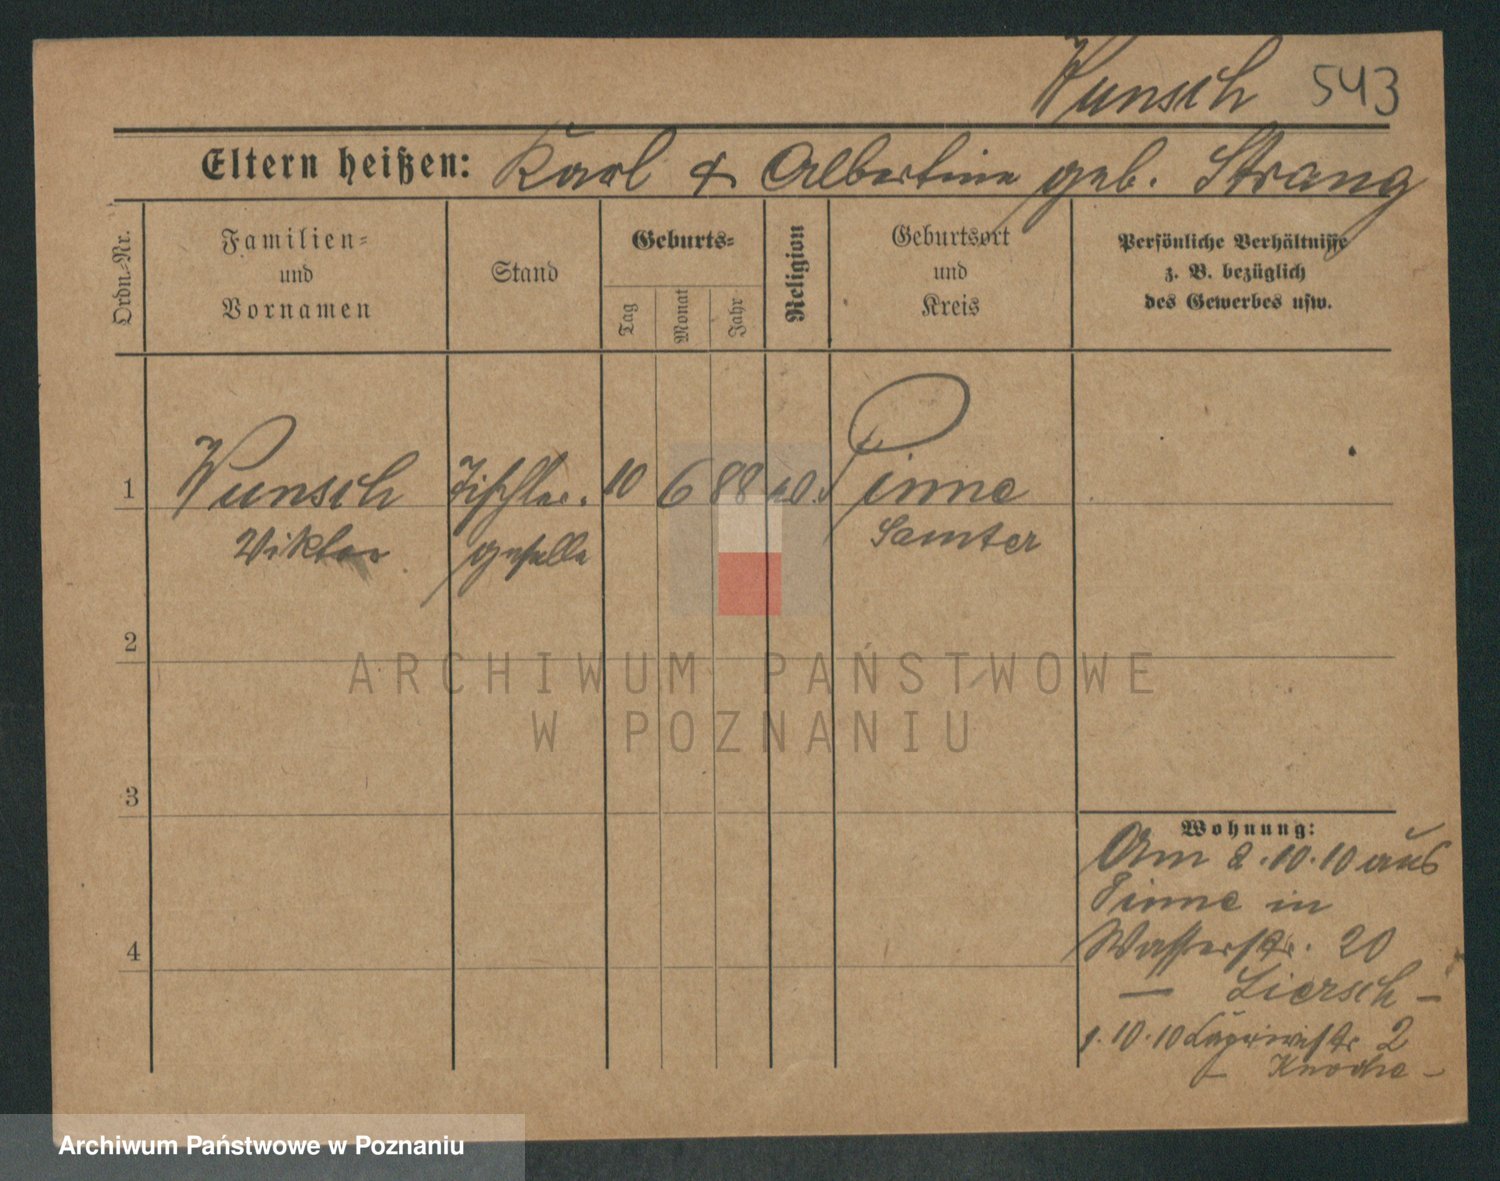 Wunsch 543
Eltern heißen: Karl & Albertine geb. Strang
Ordn.-Nr.
Familien-
und
Vornamen
Stand
Geburts-
Tag
Monat
Jahr
Religion
Geburtsort
und
Kreis
Persönliche Verhältnisse
z. B. bezüglich
des Gewerbes usw.
1 Wunsch Tischler- 10 6 88 Pinne
Viktor geselle Samter
2
3
4
Wohnung:
Am 2.10.10 aus
Pinne in
Wasserstr. 20
— Liersch —
10.10 2
ARCHIWUM PAŃSTWOWE
W POZNANIU
Archiwum Państwowe w Poznaniu